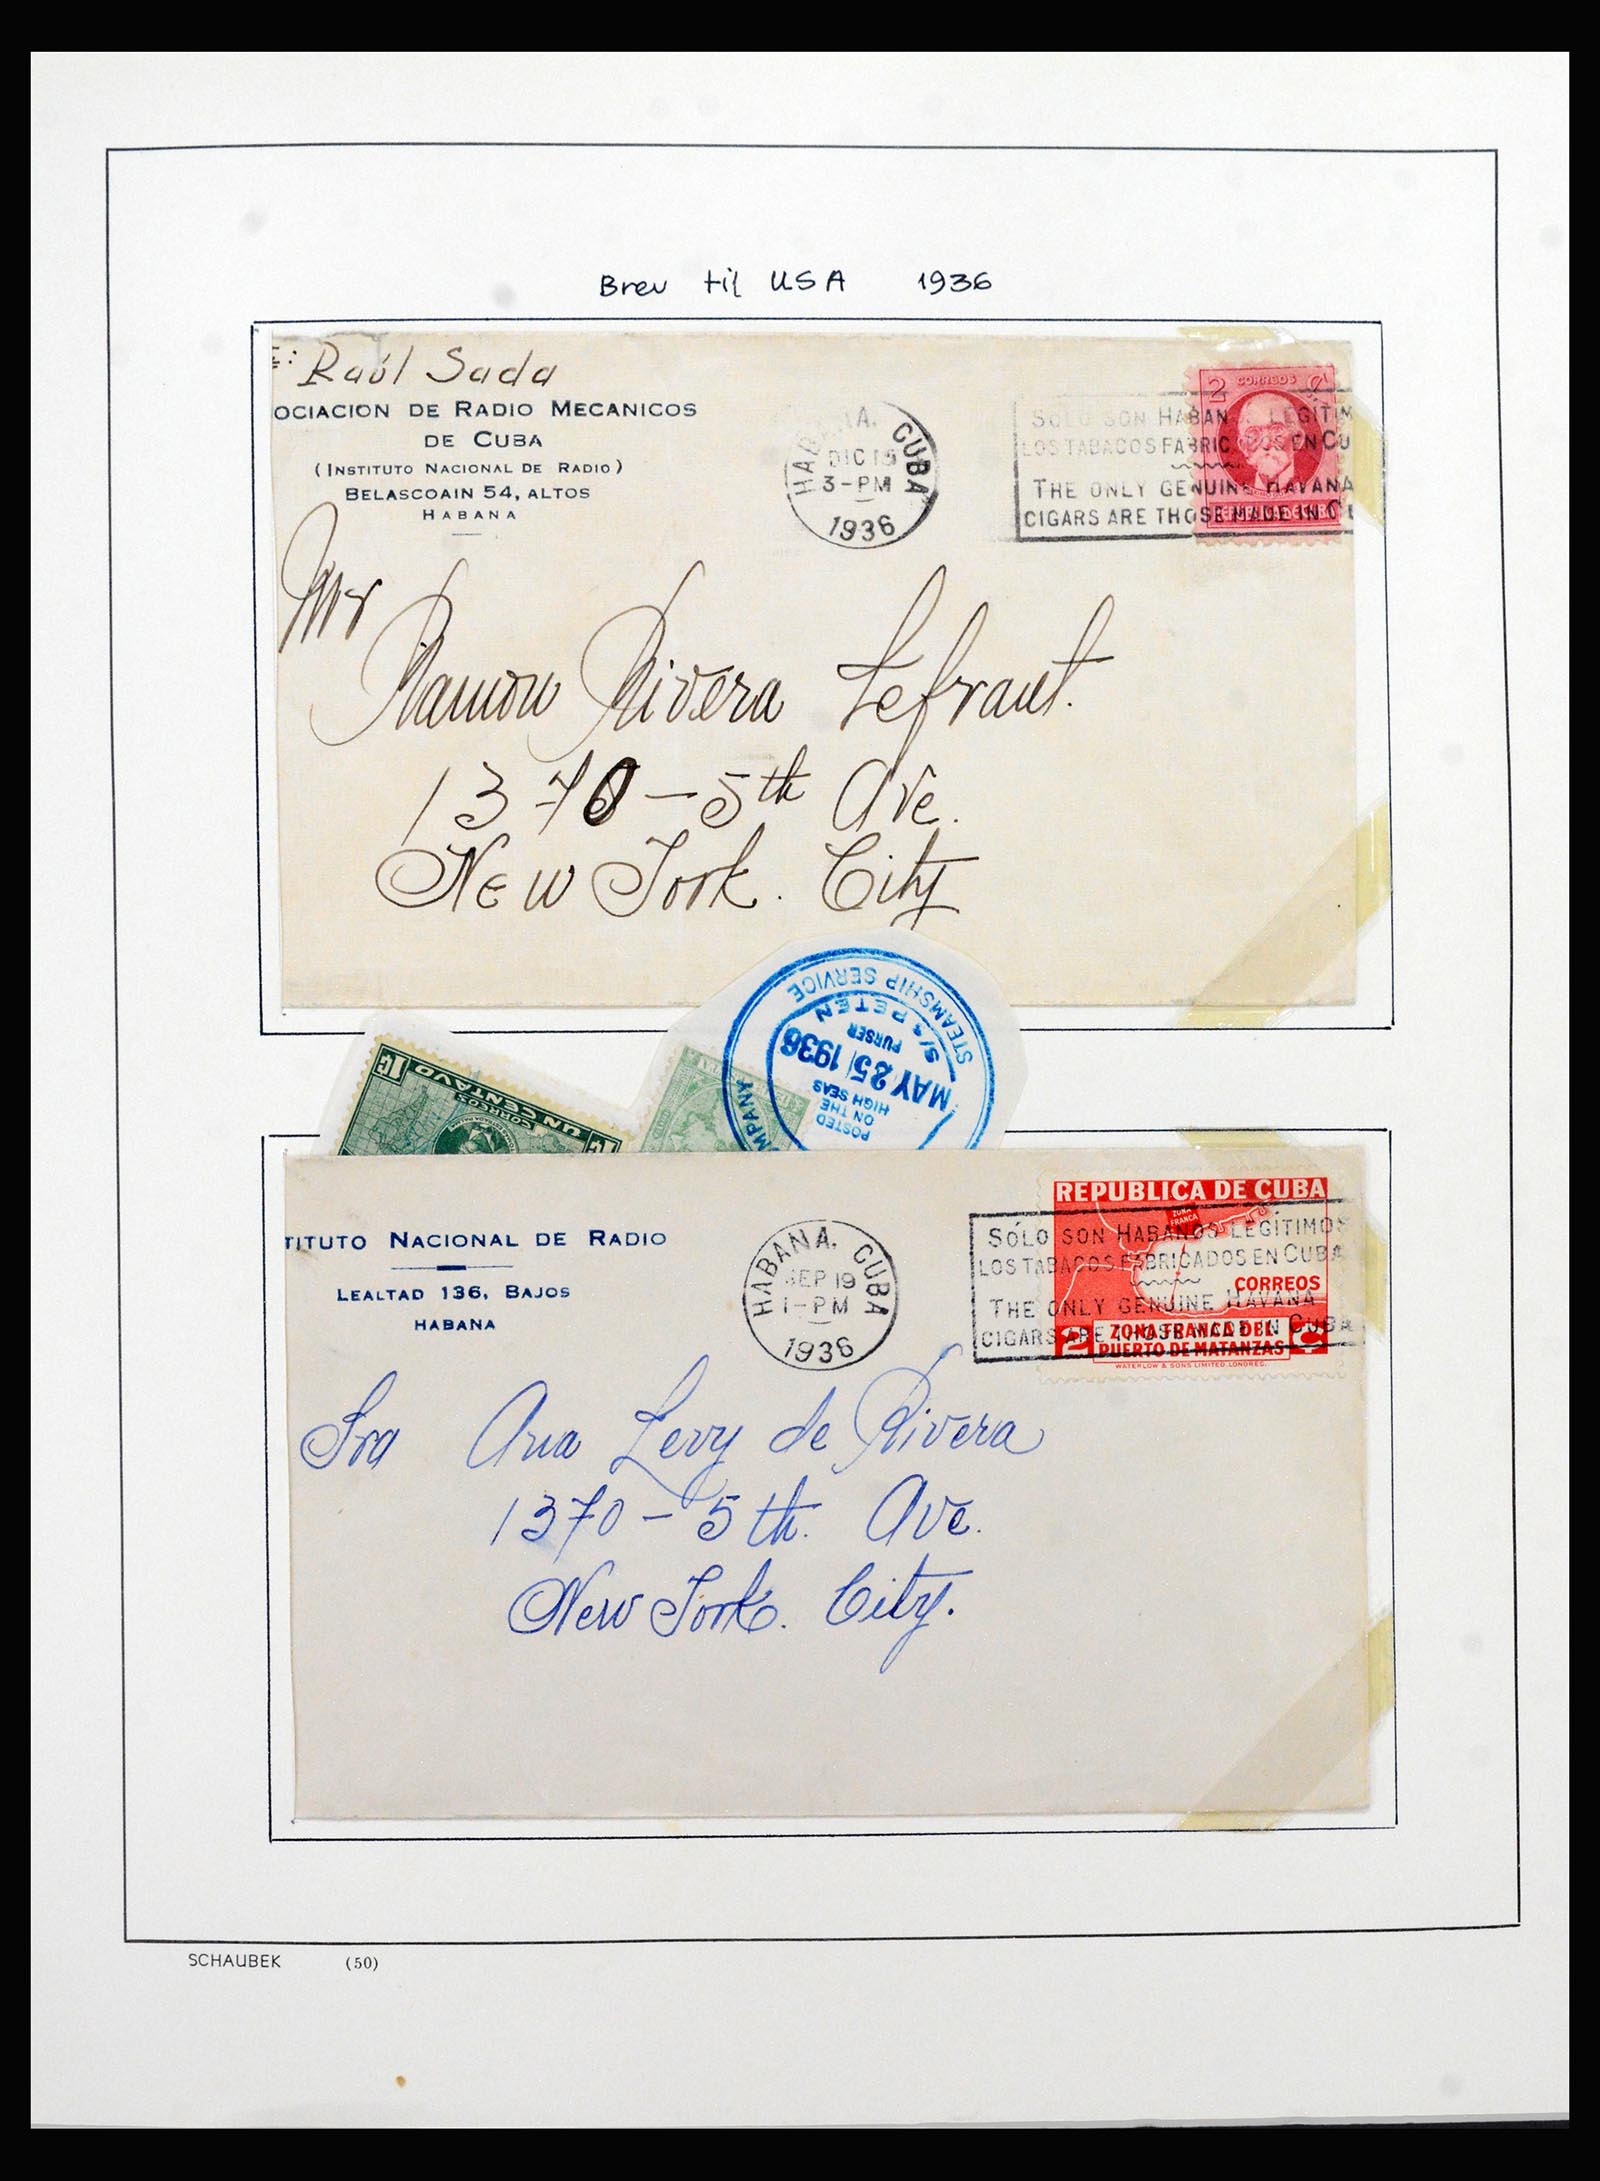 Brev til USA 1936
Raúl Sada
OCIACION DE RADIO MECANICOS
DE CUBA
(INSTITUTO NACIONAL DE RADIO)
BELASCOAIN 54, ALTOS
HABANA
HABANA. CUBA
DIC 15
3-PM
1936
2 CORREOS
SOLO SON HABAN LEGÍTIM
LOS TABACOS FABRIC OS EN CU
THE ONLY GENUINE HAVANA
CIGARS ARE THOSE MADE IN C
Mr
Ramon Rivera Lefraut.
1370-5th Ave.
New York. City
STEAMSHIP SERVICE
S/S PETEN
PURSER
MAY 25 1936
ON THE
HIGH SEAS
POSTED
MPANY
1¢ UN CENTAVO 1¢
CORREOS
TITUTO NACIONAL DE RADIO
LEALTAD 136, BAJOS
HABANA
HABANA, CUBA
SEP 19
1-PM
1936
REPUBLICA DE CUBA
ZONA
FRANCA
CORREOS
2 ZONA FRANCA DEL ¢
PUERTO DE MATANZAS
WATERLOW & SONS LIMITED. LONDRES.
SÓLO SON HABANOS LEGÍTIMOS
LOS TABACOS FABRICADOS EN CUBA
THE ONLY GENUINE HAVANA
CIGARS ARE THOSE MADE IN CUBA
Sra Ana Levy de Rivera
1370-5th. Ave.
New York. City.
SCHAUBEK (50)